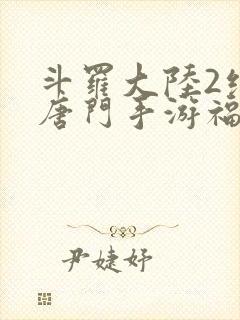 斗羅大陸2
唐門手游福
尹婕妤